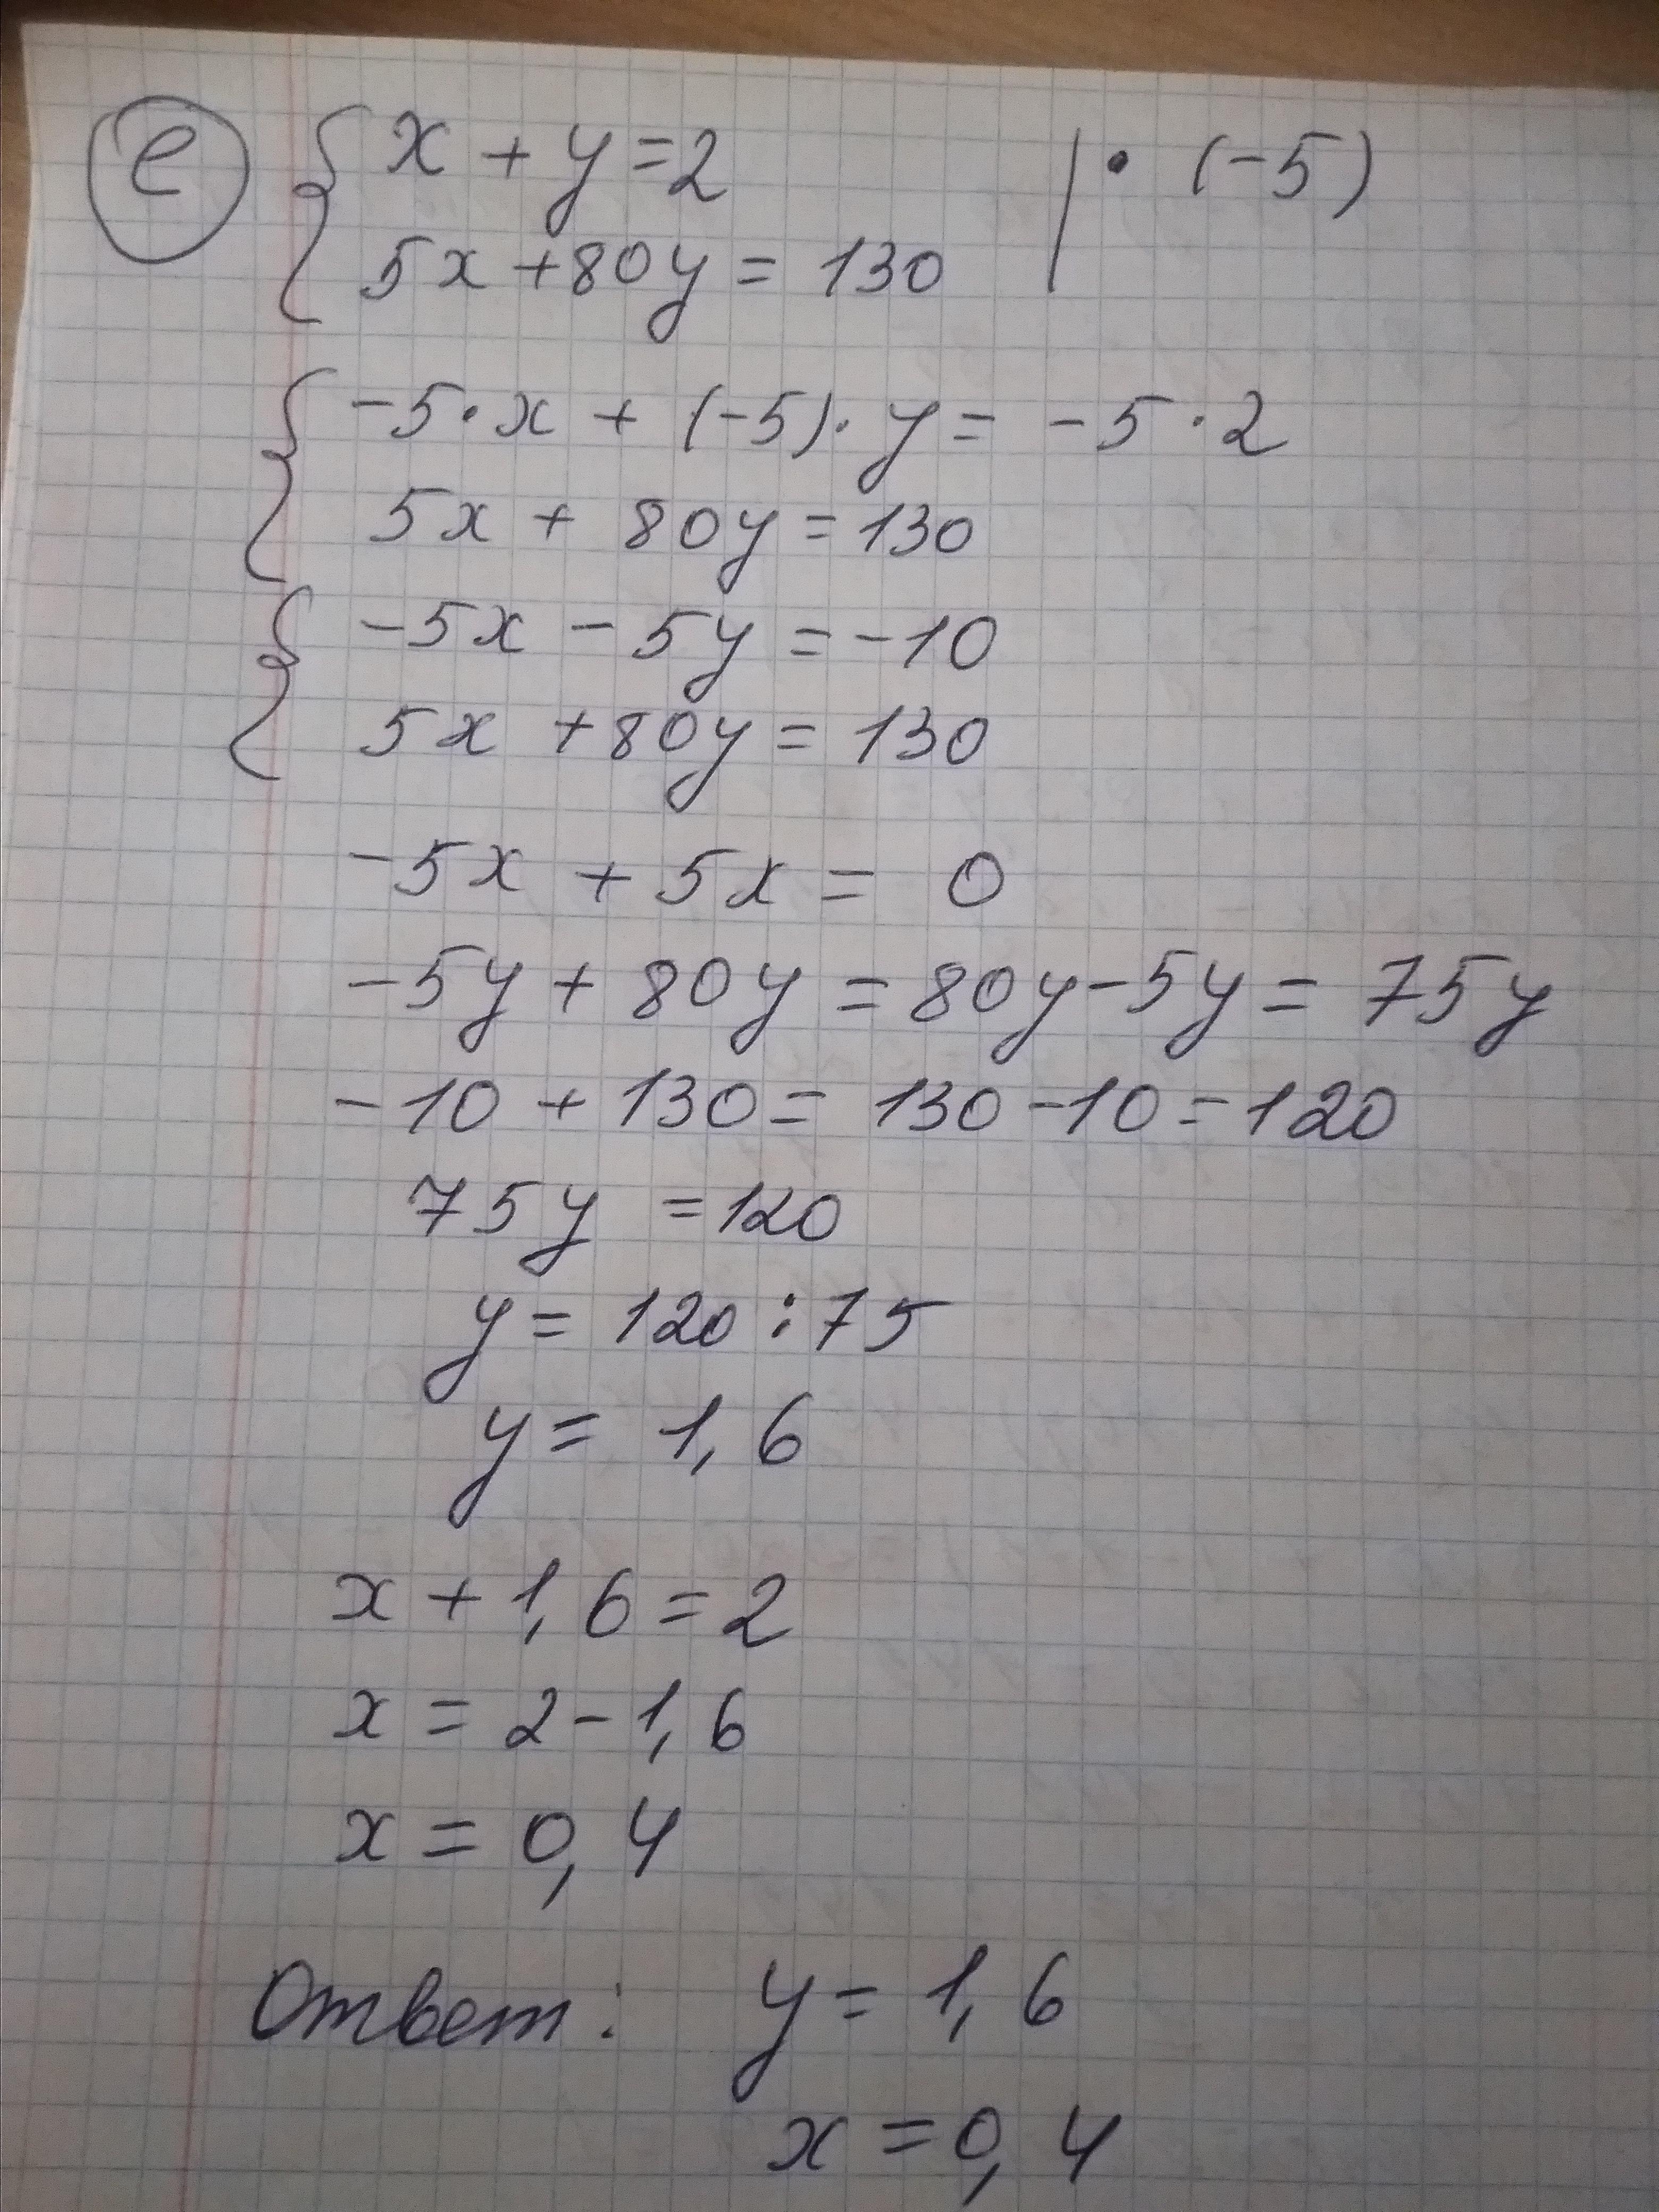 е x + y = 2 | · (-5)
5x + 80y = 130
-5 · x + (-5) · y = -5 · 2
5x + 80y = 130
-5x - 5y = -10
5x + 80y = 130
-5x + 5x = 0
-5y + 80y = 80y - 5y = 75y
-10 + 130 = 130 - 10 = 120
75y = 120
y = 120 : 75
y = 1,6
x + 1,6 = 2
x = 2 - 1,6
x = 0,4
Ответ: y = 1,6
x = 0,4